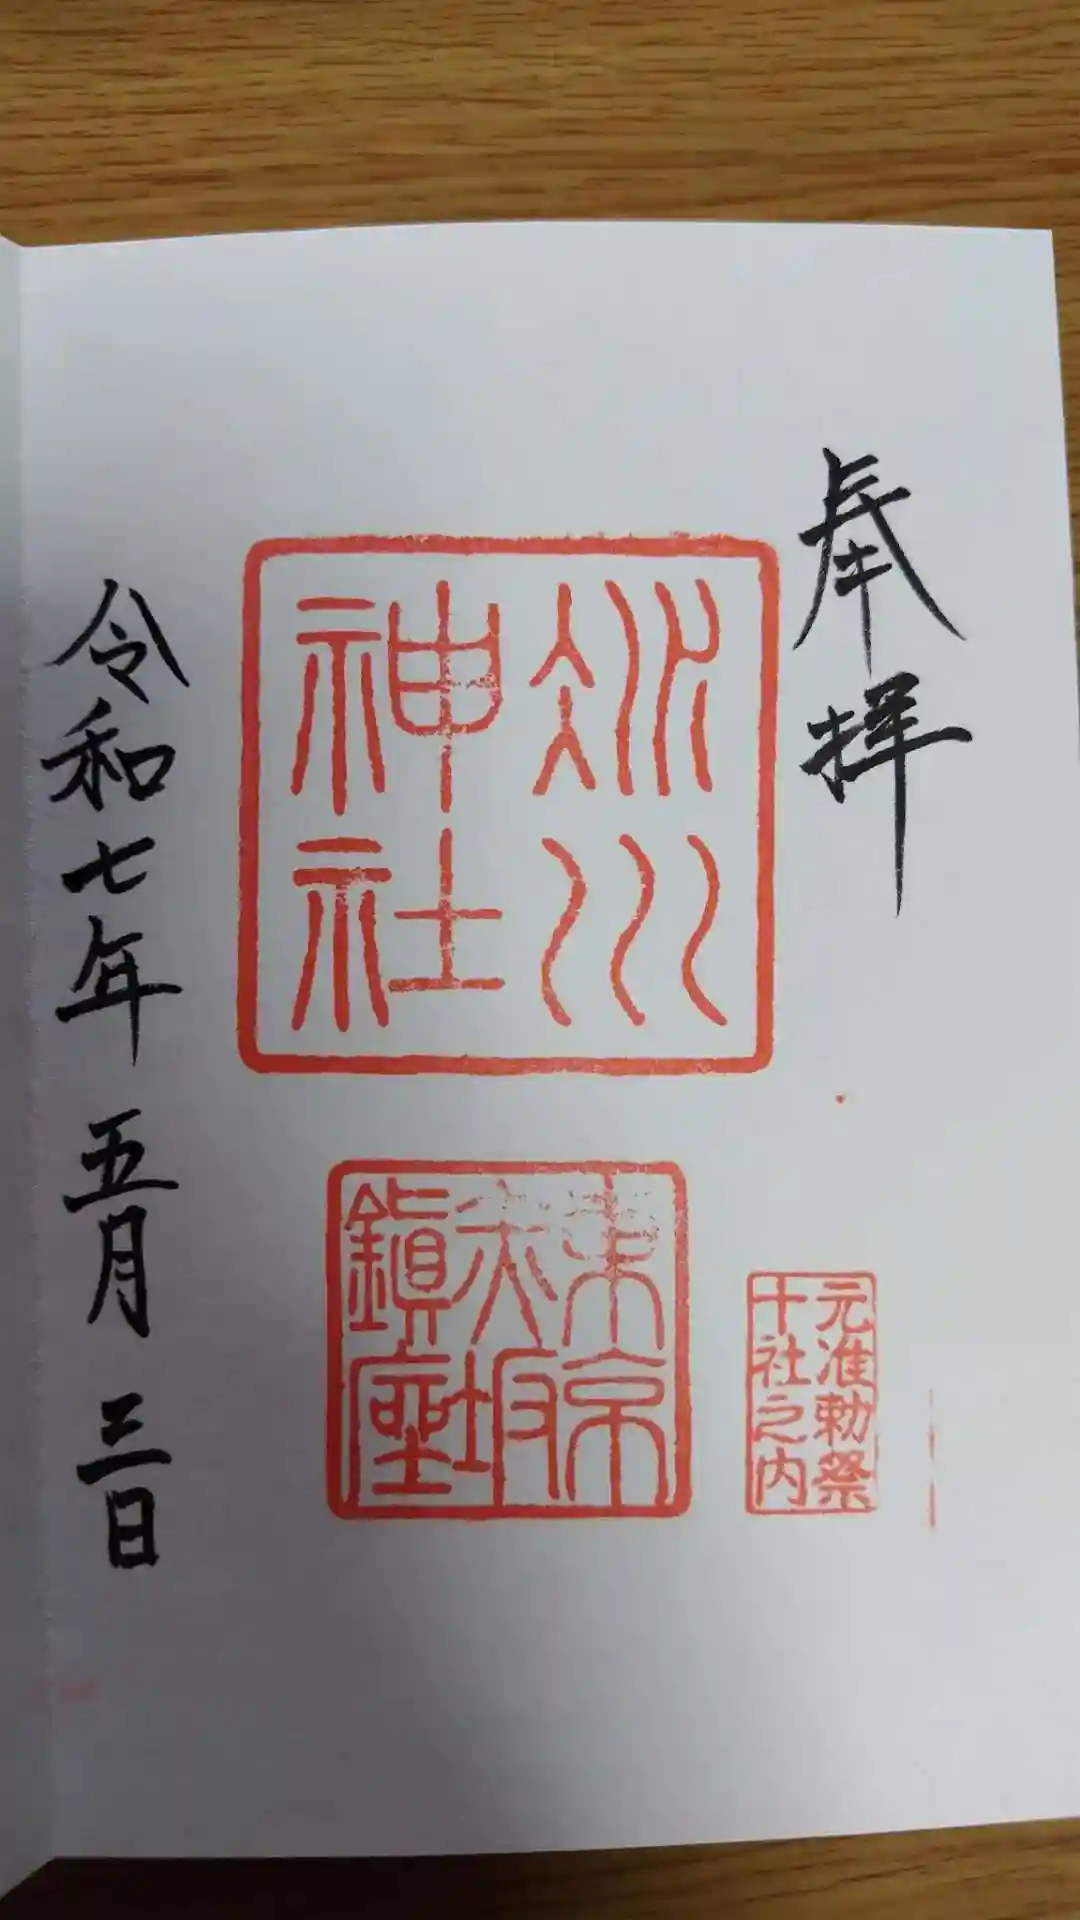 奉拝
氷川
神社
東京
赤坂
鎮座
元准勅祭
十社之内
令和七年 五月 三日